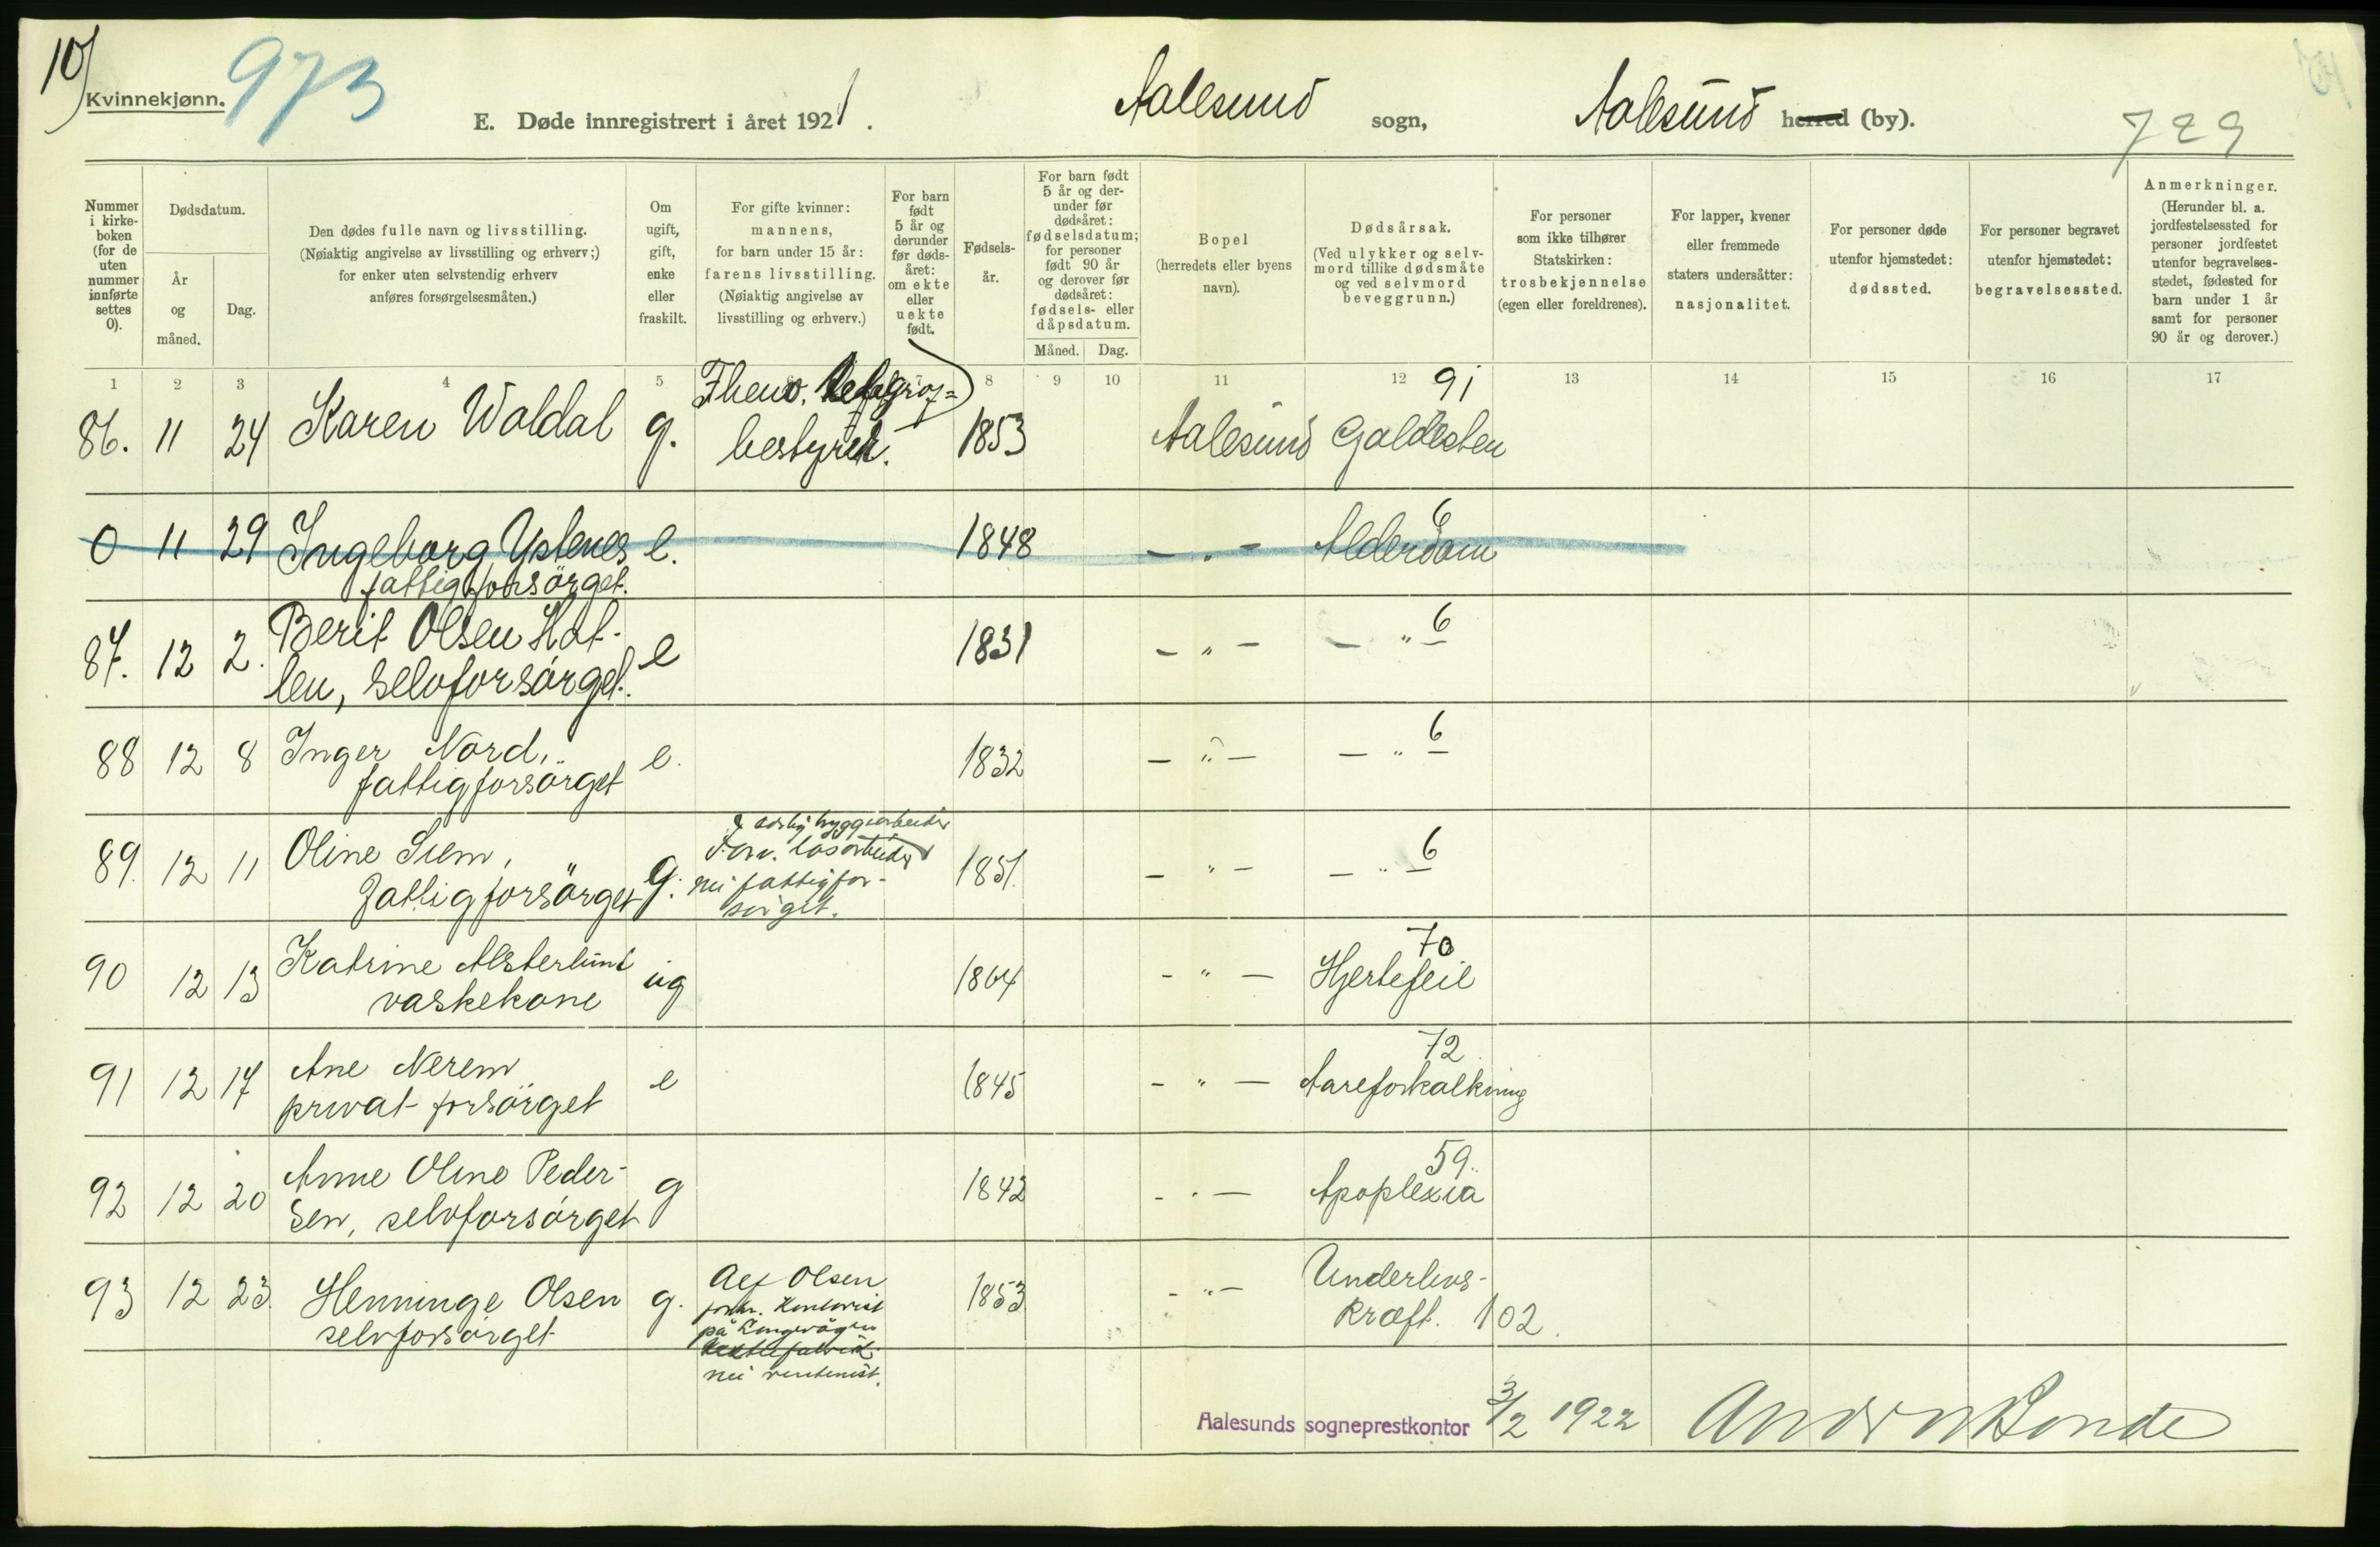 10)
Kvinnekjønn.
973
E. Døde innregistrert i året 1921.
Aalesund sogn,
Aalesund herred (by).
729
Nummer i kirke-boken (for de uten nummer innførte settes 0).
Dødsdatum.
År og måned.
Dag.
Den dødes fulle navn og livsstilling.
(Nøiaktig angivelse av livsstilling og erhverv;)
for enker uten selvstendig erhverv
anføres forsørgelsesmåten.)
Om ugift, gift, enke eller fraskilt.
For gifte kvinner: mannens, for barn under 15 år: farens livsstilling. (Nøiaktig angivelse av livsstilling og erhverv.)
For barn født 5 år og derunder før døds-året: om ekte eller uekte født.
Fødsels-år.
For barn født 5 år og der-under før dødsåret: fødselsdatum; for personer født 90 år og derover før dødsåret: fødsels- eller dåpsdatum.
Måned. Dag.
Bopel (herredets eller byens navn).
Dødsårsak. (Ved ulykker og selv-mord tillike dødsmåte og ved selvmord beveggrunn.)
For personer som ikke tilhører Statskirken: trosbekjennelse (egen eller foreldrenes).
For lapper, kvener eller fremmede staters undersåtter: nasjonalitet.
For personer døde utenfor hjemstedet: dødssted.
For personer begravet utenfor hjemstedet: begravelsessted.
Anmerkninger. (Herunder bl. a. jordfestelsessted for personer jordfestet utenfor begravelses-stedet, fødested for barn under 1 år samt for personer 90 år og derover.)
1 2 3 4 5 6 7 8 9 10 11 12 13 14 15 16 17
91
86. 11 24 Karen Waldal g. bestyrer. 1853 Aalesund Galdesten
6
0 11 29 Ingeborg Ystenes e. 1848 - " - Alderdom
fattigforsörget.
87. 12 2. Berit Olsen Hat- e 1831 - " - - " - 6
len, selvforsörget.
88 12 8 Inger Nord, e. 1832 - " - - " - 6
fattigforsörget
89. 12 11 Oline Siem, g. 1851. - " - - " - 6
fattigforsörget
nu fattigfor-
sörget.
70
90 12 13 Katrine Alsterlund ug 1864 - " - Hjertefeil
vaskekone
72
91 12 17 Ane Nerem e 1845 - " - Aareforkalkning
privat forsörget
59.
92 12 20 Anne Oline Peder- g 1842 - " - Apoplexia
sen, selvforsörget
93 12 23. Henninge Olsen g. Olsen 1853 - " - Underlivs-
selvforsörget kræft. 102.
forhv. kontorist
på Langevågen
nu rentenist.
Aalesunds sogneprestkontor 3/2 1922